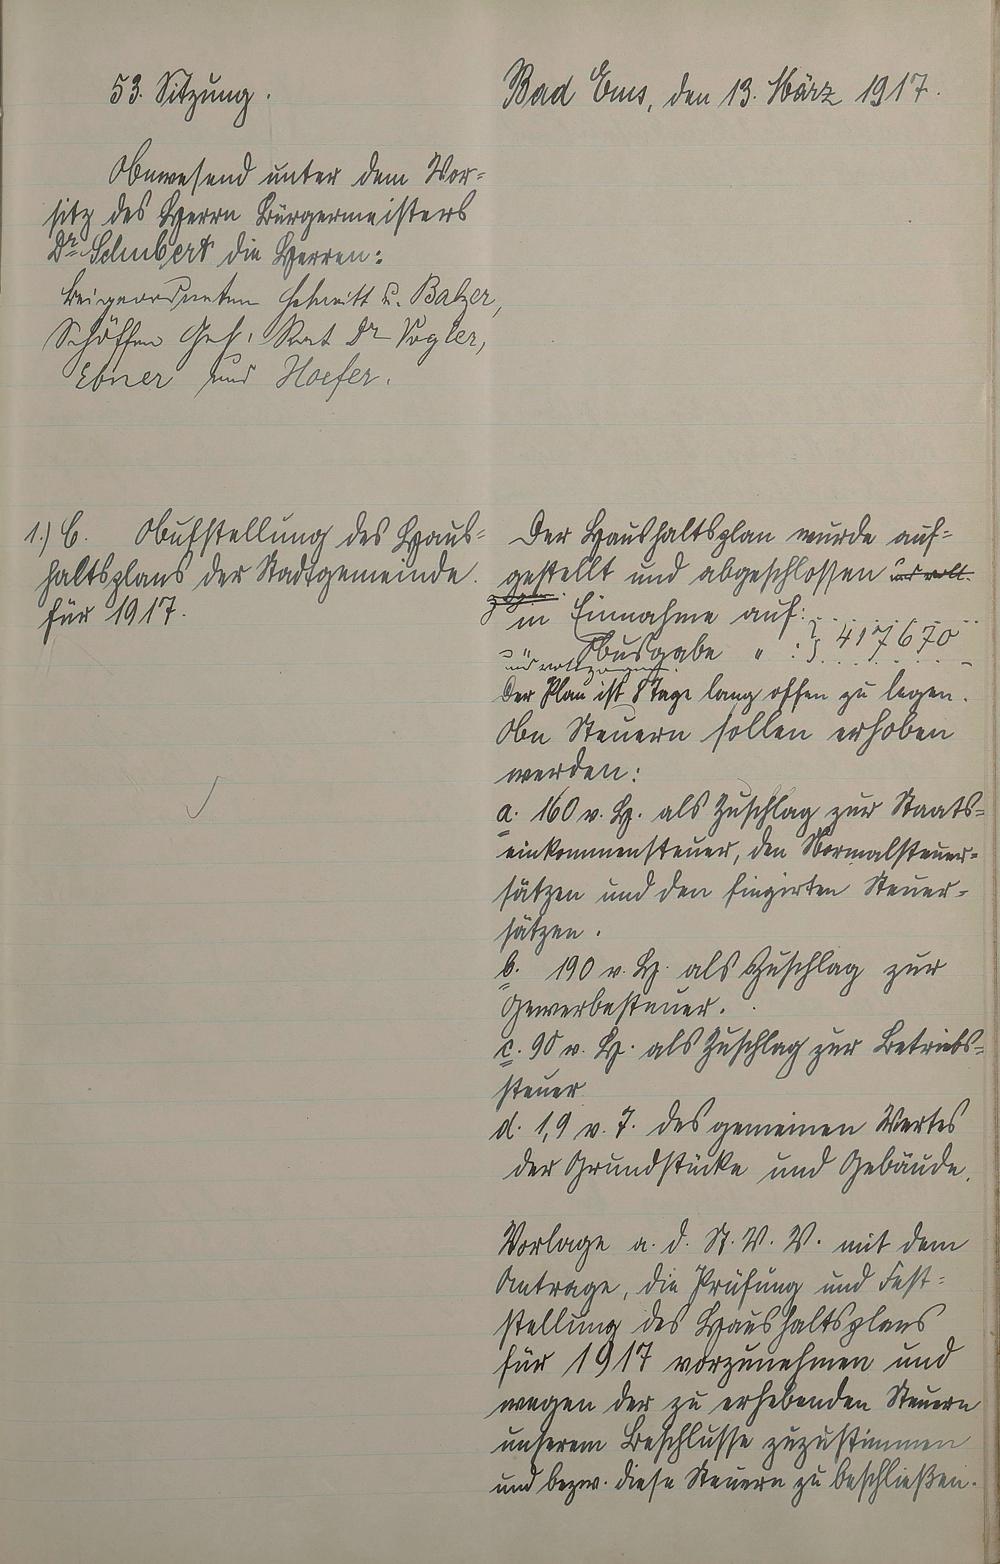 53. Sitzung.
Bad Ems, den 13. März 1917.
Anwesend unter dem Vor-
sitz des Herrn Bürgermeisters
Dr. Schubert die Herren:
Beigeordneten Schmitt u. Balzer,
Schöffen Geh. Rat Dr Vogler,
Ebner und Hoefer.
1.) C. Aufstellung des Haus-
haltsplans der Stadtgemeinde
für 1917.
Der Haushaltsplan wurde auf-
gestellt und abgeschlossen und voll-
zogen
in Einnahme auf:
Ausgabe " : } 417670
und vollzogen.
Der Plan ist 8 Tage lang offen zu legen.
An Steuern sollen erhoben
werden:
a. 160 v. H. als Zuschlag zur Staats-
einkommensteuer, den Normalsteuer-
sätzen und den fingirten Steuer-
sätzen.
b. 190 v. H. als Zuschlag zur
Gewerbesteuer.
c. 90 v. H. als Zuschlag zur Betriebs-
steuer
d. 1,9 v. T. des gemeinen Wertes
der Grundstücke und Gebäude.
Vorlage a. d. St. V. V. mit dem
Antrage, die Prüfung und Fest-
stellung des Haushaltsplans
für 1917 vorzunehmen und
wegen der zu erhebenden Steuern
unserem Beschlusse zuzustimmen
und bezw. diese Steuern zu beschließen.